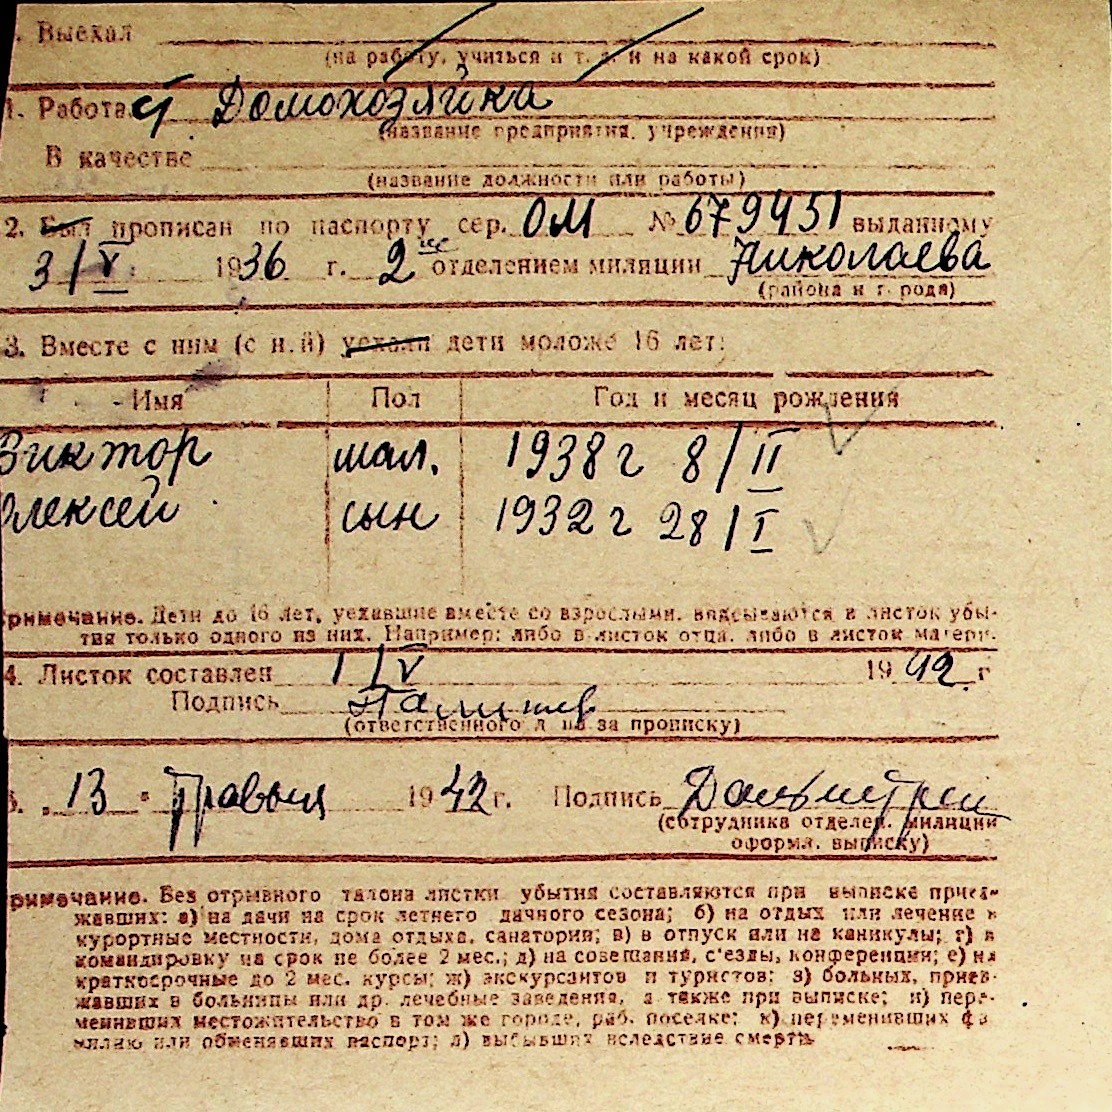 . Выехал
(на работу, учиться и т. д. и на какой срок)
1. Работа Домохозяйка
(название предприятия, учреждения)
В качестве
(название должности или работы)
2. Был прописан по паспорту сер. ОМ № 679451 выданному
3/V 1936 г. 2ое отделением милиции Николаева
(района и города)
3. Вместе с ним (с ней) уехали дети моложе 16 лет:
Имя Пол Год и месяц рождения
Виктор мал. 1938 г 8/II
Алексей сын 1932 г 28/I
римечание. Дети до 16 лет, уехавшие вместе со взрослыми, вписываются в листок убы-
тия только одного из них. Например: либо в листок отца, либо в листок матери.
4. Листок составлен 1/V 1942 г
Подпись
(ответственного лица за прописку)
5. „13" Травыня 1942 г. Подпись
(сотрудника отделен. милиции
оформл. выписку)
римечание. Без отрывного талона листки убытия составляются при выписке приез-
жавших: а) на дачи на срок летнего дачного сезона; б) на отдых или лечение в
курортные местности, дома отдыха, санатории; в) в отпуск или на каникулы; г) в
командировку на срок не более 2 мес.; д) на совещания, с'езды, конференции; е) на
краткосрочные до 2 мес. курсы; ж) экскурсантов и туристов; з) больных, приез-
жавших в больницы или др. лечебные заведения, а также при выписке; и) пере-
менивших местожительство в том же городе, раб. поселке; к) переменивших фа
милию или обменявших паспорт; л) выбывших вследствие смерти